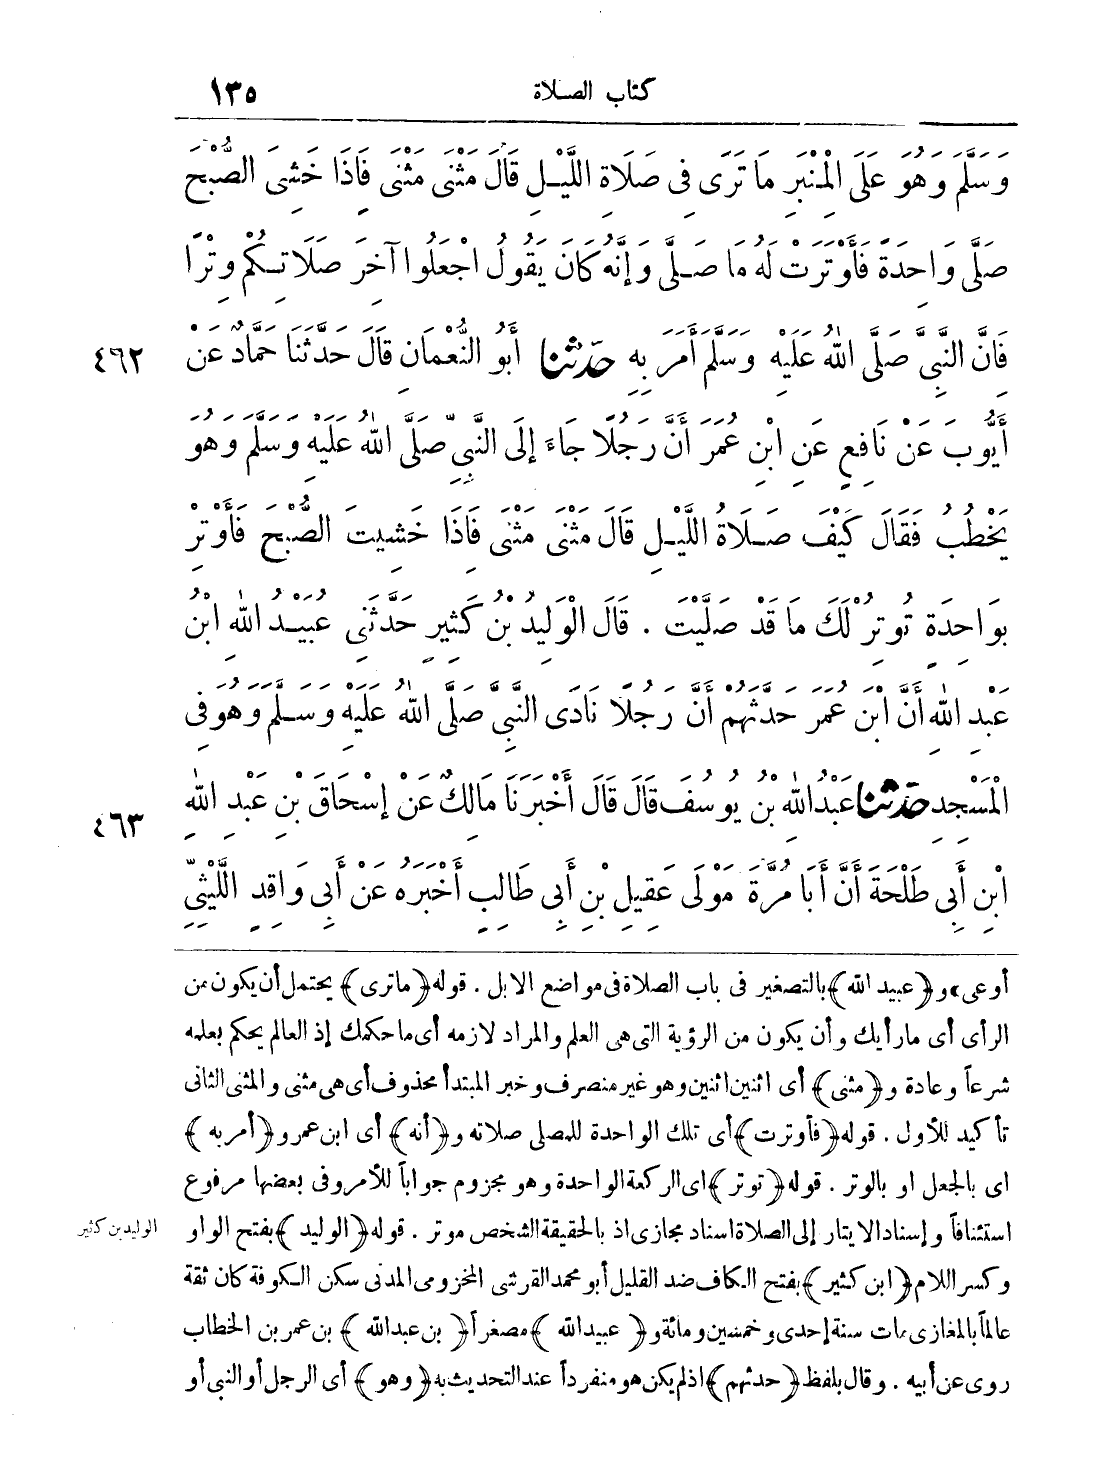 كتاب الصلاة ١٣٥
وَسَلَّمَ وَهُوَ عَلَى الْمِنْبَرِ مَا تَرَى فِى صَلَاةِ اللَّيْلِ قَالَ مَثْنَى مَثْنَى فَإِذَا خَشِىَ الصُّبْحَ
صَلَّى وَاحِدَةً فَأَوْتَرَتْ لَهُ مَا صَلَّى وَإِنَّهُ كَانَ يَقُولُ اجْعَلُوا آخِرَ صَلَاتِكُمْ وِتْرًا
فَإِنَّ النَّبِىَّ صَلَّى اللهُ عَلَيْهِ وَسَلَّمَ أَمَرَ بِهِ حَدَّثَنَا أَبُو النُّعْمَانِ قَالَ حَدَّثَنَا حَمَّادٌ عَنْ ٤٦٢
أَيُّوبَ عَنْ نَافِعٍ عَنِ ابْنِ عُمَرَ أَنَّ رَجُلًا جَاءَ إِلَى النَّبِىِّ صَلَّى اللهُ عَلَيْهِ وَسَلَّمَ وَهُوَ
يَخْطُبُ فَقَالَ كَيْفَ صَلَاةُ اللَّيْلِ قَالَ مَثْنَى مَثْنَى فَإِذَا خَشِيتَ الصُّبْحَ فَأَوْتِرْ
بِوَاحِدَةٍ تُوتِرُ لَكَ مَا قَدْ صَلَّيْتَ . قَالَ الْوَلِيدُ بْنُ كَثِيرٍ حَدَّثَنِى عُبَيْدُ اللهِ ابْنُ
عَبْدِ اللهِ أَنَّ ابْنَ عُمَرَ حَدَّثَهُمْ أَنَّ رَجُلًا نَادَى النَّبِىَّ صَلَّى اللهُ عَلَيْهِ وَسَلَّمَ وَهُوَ فِى
الْمَسْجِدِ حَدَّثَنَا عَبْدُ اللهِ بْنُ يُوسُفَ قَالَ قَالَ أَخْبَرَنَا مَالِكٌ عَنْ إِسْحَاقَ بْنِ عَبْدِ اللهِ ٤٦٣
ابْنِ أَبِى طَلْحَةَ أَنَّ أَبَا مُرَّةَ مَوْلَى عَقِيلِ بْنِ أَبِى طَالِبٍ أَخْبَرَهُ عَنْ أَبِى وَاقِدٍ اللَّيْثِىِّ
أوعى» و﴿عبيد الله﴾ بالتصغير فى باب الصلاة فى مواضع الابل . قوله ﴿ماترى﴾ يحتمل أن يكون من
الرأى أى مارأيك وأن يكون من الرؤية التى هى العلم والمراد لازمه أى ما حكمك إذ العالم يحكم بعلمه
شرعاً وعادة و﴿مثنى﴾ أى اثنين اثنين وهو غير منصرف وخبر المبتدأ محذوف أى هى مثنى والمثنى الثانى
تأكيد للأول . قوله ﴿فأوترت﴾ أى تلك الواحدة للمصلى صلاته و﴿أنه﴾ أى ابن عمر و﴿أمر به﴾
اى بالجعل او بالوتر . قوله ﴿توتر﴾ اى الركعة الواحدة وهو مجزوم جواباً للأمر وفى بعضها مرفوع
استئنافاً وإسناد الايتار إلى الصلاة اسناد مجازى اذ بالحقيقة الشخص موتر . قوله ﴿الوليد﴾ بفتح الواو الوليد بن كثير
وكسر اللام ﴿ابن كثير﴾ بفتح الكاف ضد القليل أبو محمد القرشى المخزومى المدنى سكن الكوفة كان ثقة
عالماً بالمغازى مات سنة إحدى وخمسين ومائة و﴿عبيد الله﴾ مصغراً ﴿بن عبد الله﴾ بن عمر بن الخطاب
روى عن أبيه . وقال بلفظ ﴿حدثهم﴾ اذ لم يكن هو منفرداً عند التحديث به ﴿وهو﴾ أى الرجل أو النبى أو